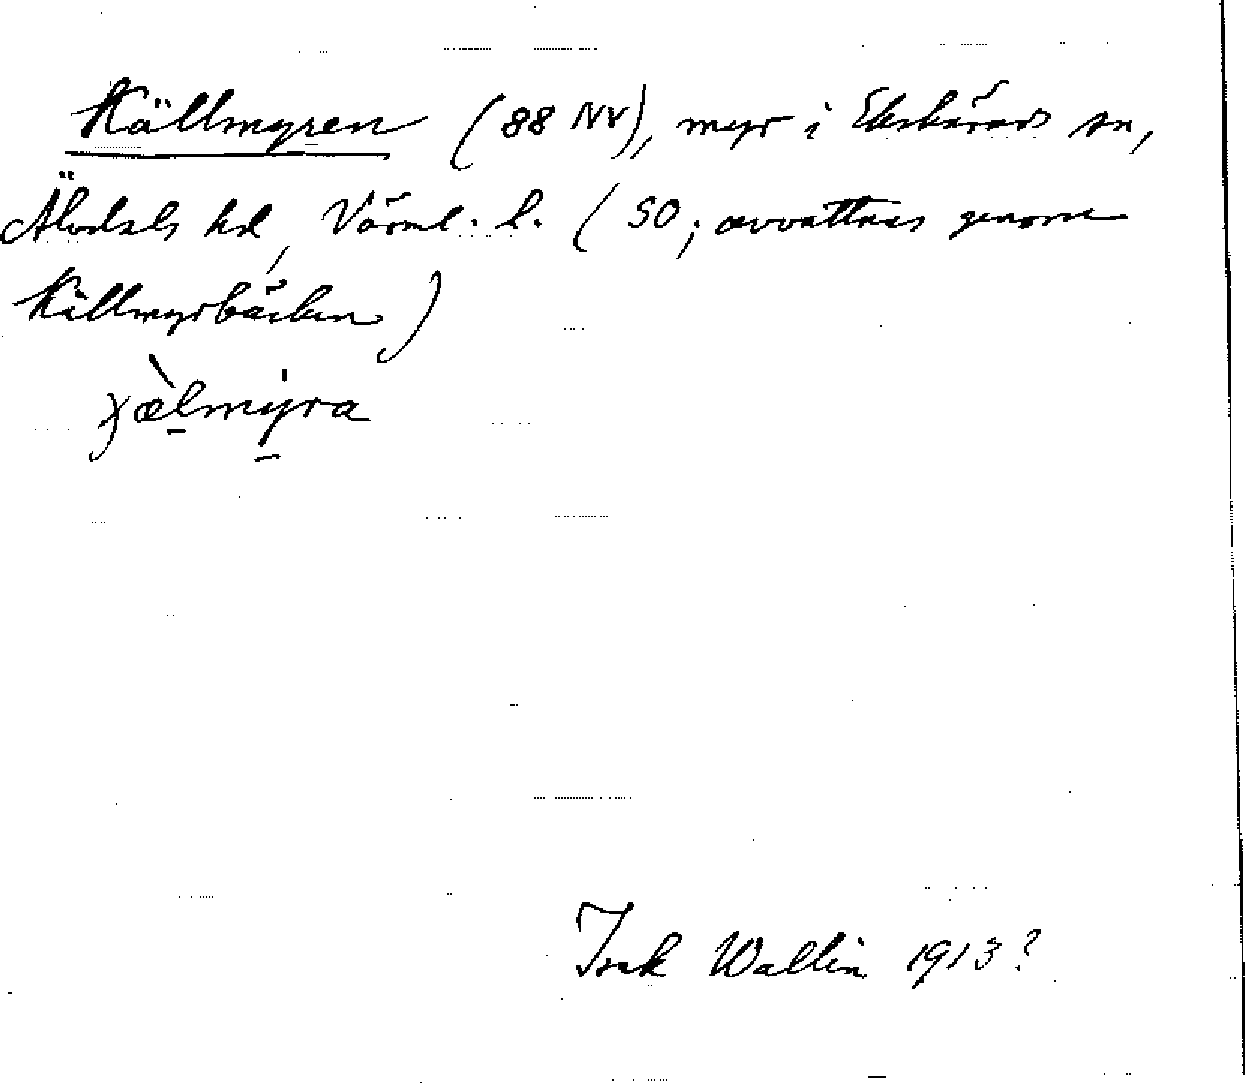 Källmyren (88 NV), myr i Ekshärads sn,
Älvdals hd, Värml. l. (SO; avvattnas genom
Källmyrbäcken)
χæ̀lmýra
Isak Wallin 1913?